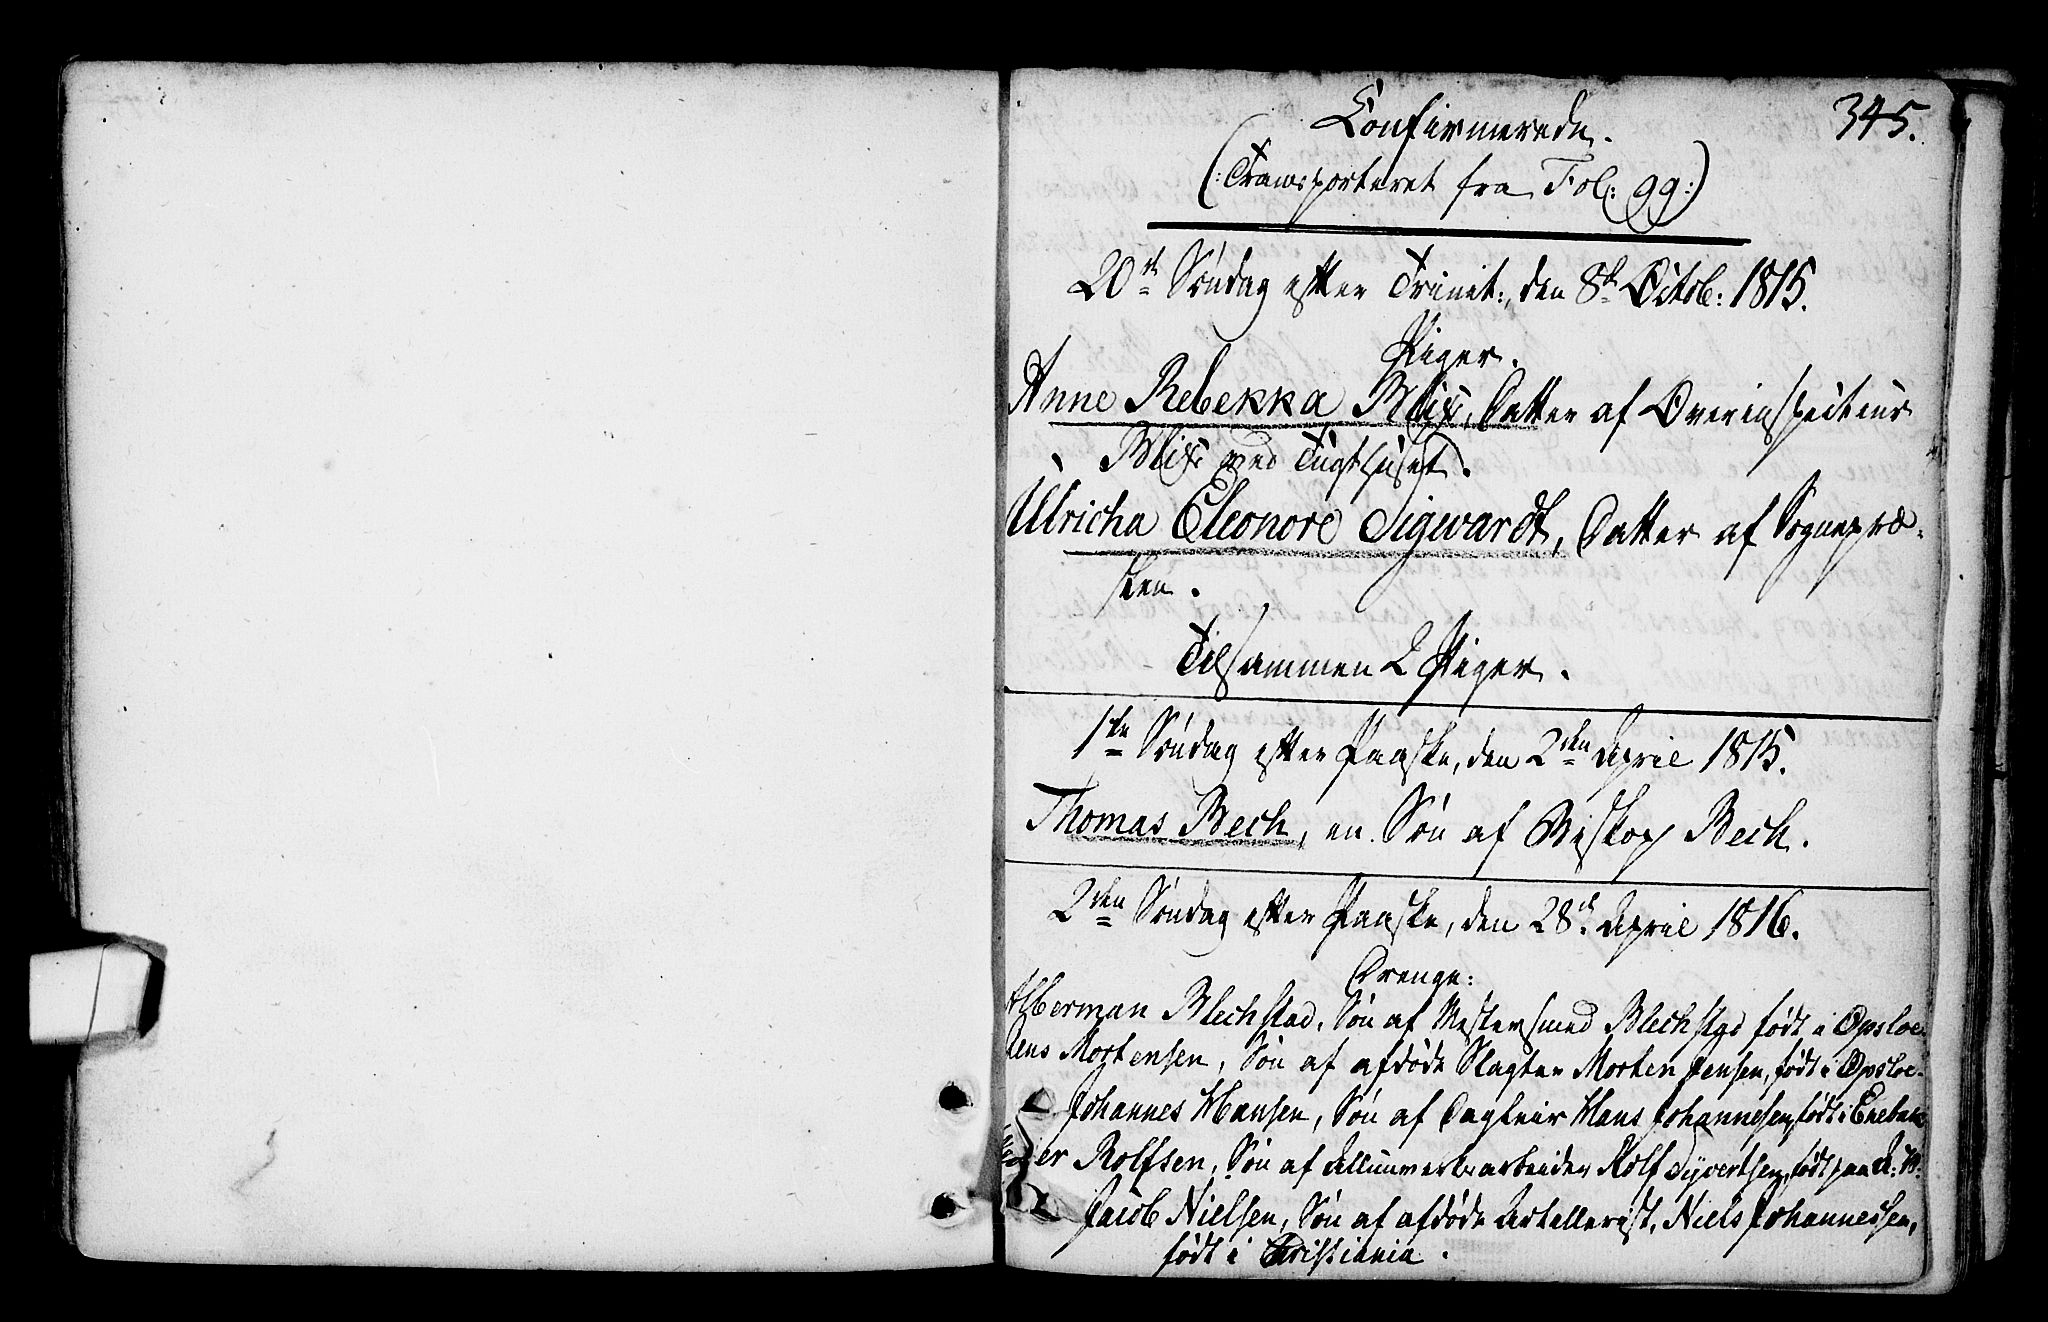 345.
Confirmerede.
(: Transporteret fra Fol: 99:)
20de Søndag efter Trinit:, den 8de Octob: 1815.
Piger.
Anne Rebekka Blix, Datter af Overinspecteur
Blix ved Tugthuset.
Ulricha Eleonore Sigwardt, Datter af Sognepræ-
sten.
Tilsammen 2 Piger.
1ste Søndag efter Paaske, den 2den April 1815.
Thomas Bech, en Søn af Biskop Bech.
2den Søndag efter Paaske, den 28de April 1816.
Drenge:
Abberman Blechstad, Søn af Mestersmed Blechstad født i Opsloe
Jens Mortensen, Søn af afdøde Slagter Morten Jensen, født i Opsloe.
Johannes Hansen, Søn af Hans Johannesen, født i Eneba
er Rolfsen, Søn af Allunverksarbeider Rolf Syvertsen, født paa A: W.
Jacob Nielsen, Søn af afdøde Artellerist, Niels Johannessen,
født i Christiania.